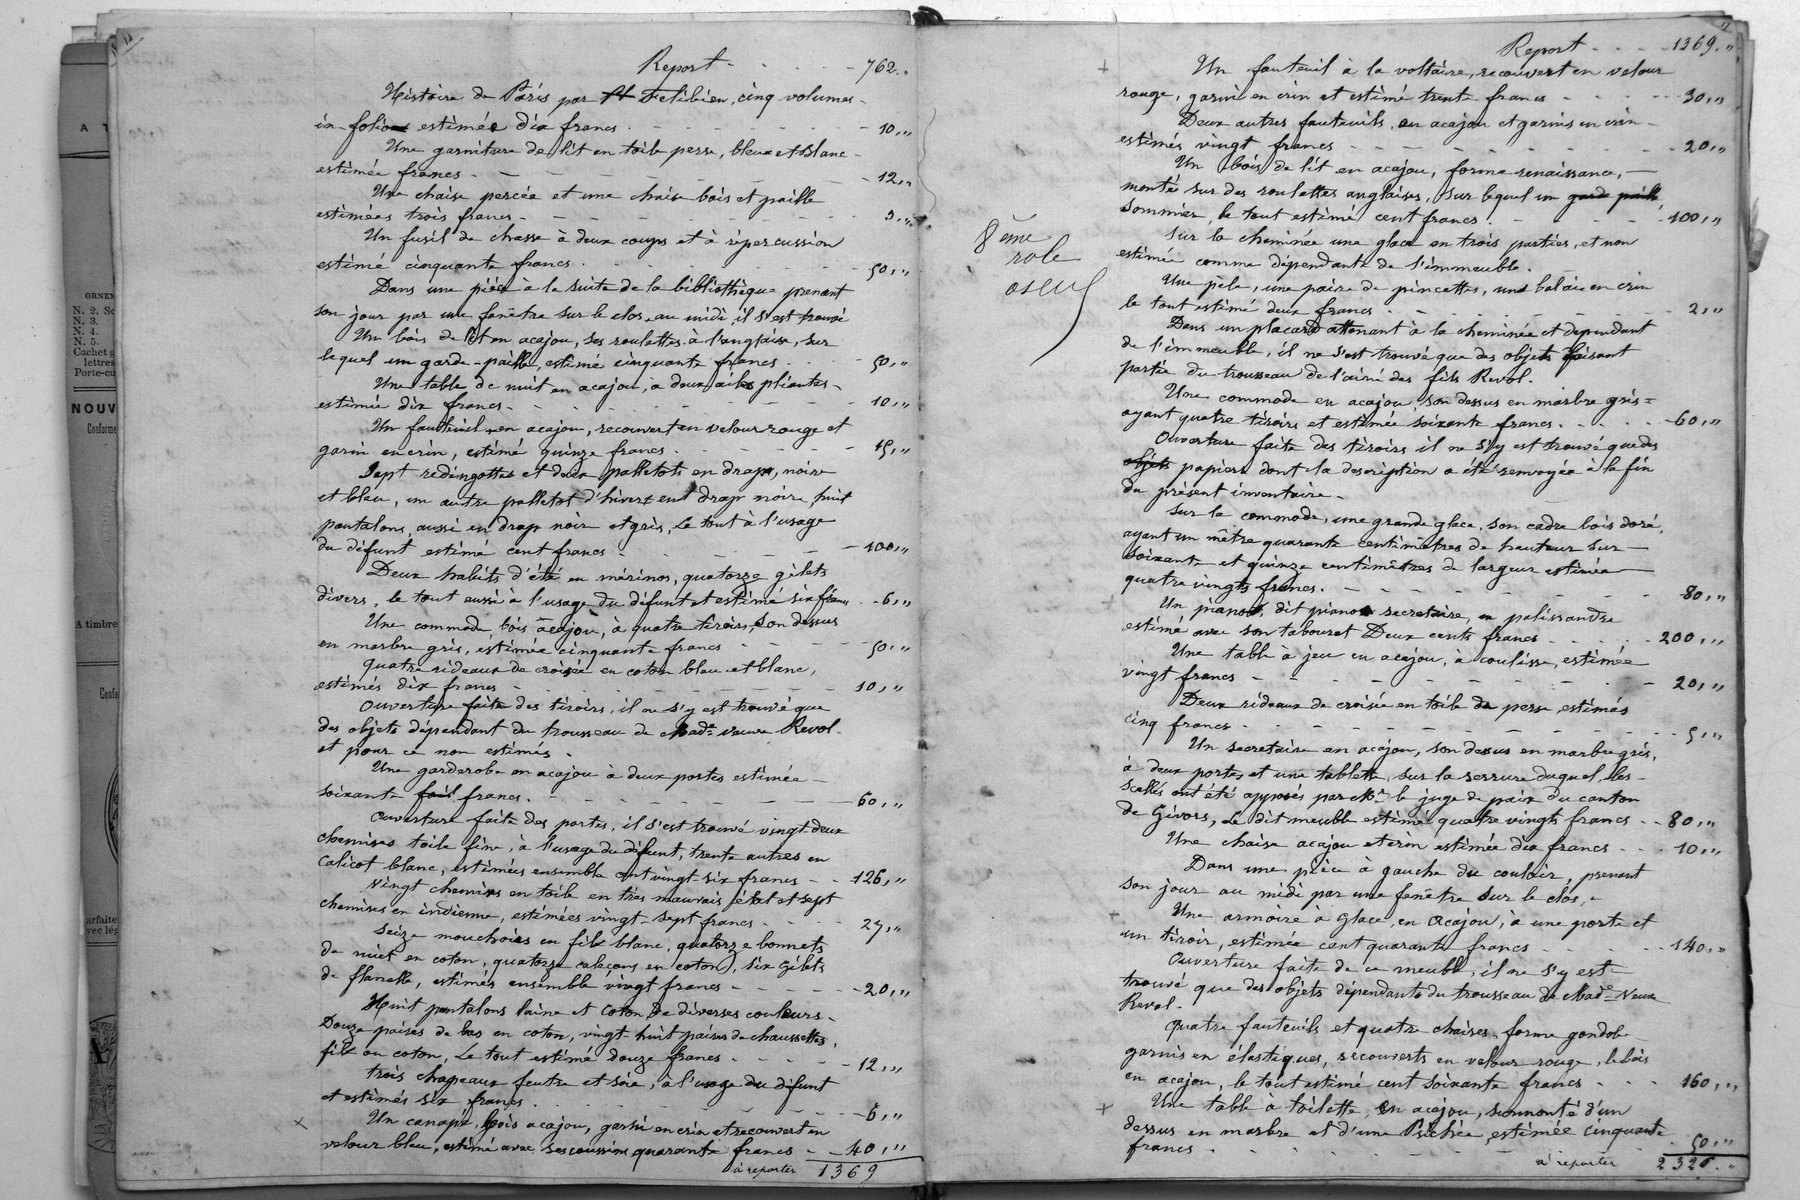 Report - - - - - 762. "
Histoire de Paris par Felibien, cinq volumes -
in-folio estimés dix francs - - - - - - 10, "
Une garniture de lit en toile perse, bleue et blanc -
estimée francs - - - - - - - - 12, "
Une chaise percée et une chaise bois et paille
estimées trois francs - - - - - - - 3, "
Un fusil de chasse à deux coups et à répercussion
estimé cinquante francs - - - - - - 50, "
Dans une pièce à la suite de la bibliothèque prenant
son jour par une fenêtre sur le clos, au midi, il s'est trouvé
Un bois de lit en acajou, ses roulettes à l'anglaise, sur
lequel un garde-paille, estimé cinquante francs - - 50, "
Une table de nuit en acajou, à deux ailes pliantes -
estimée dix francs - - - - - - - - 10, "
Un fauteuil en acajou, recouvert en velour rouge et
garni en crin, estimé quinze francs - - - - 15, "
Sept redingottes et deux palletots en drap, noire
et bleu, un autre palletot d'hivert en drap noire, huit
pantalons, aussi en drap noir et gris, Le tout à l'usage
du défunt estimé cent francs - - - - - 100, "
Deux habits d'été en mérinos, quatorze gilets
divers, le tout aussi à l'usage du défunt et estimé six francs - 6, "
Une commode bois acajou, à quatre tiroirs, son dessus
en marbre gris, estimée cinquante francs - - - 50, "
Quatre rideaux de croisée en coton bleu et blanc,
estimés dix francs - - - - - - - 10, "
Ouverture faite des tiroirs, il ne s'y est trouvé que
des objets dépendant du trousseau de Made veuve Revol
et pour ce non estimés.
Une garderobe en acajou à deux portes estimée -
soixante francs - - - - - - - - 60, "
Ouverture faite des portes, il s'est trouvé vingt deux
chemises toile fine, à l'usage du défunt, trente autres en
calicot blanc, estimées ensemble cent vingt-six francs - - 126, "
Vingt chemises en toile en très mauvais état et sept
chemises en indienne, estimées vingt-sept francs - - - 27, "
Seize mouchoirs en fil blanc, quatorze bonnets
de nuit en coton, quatorze caleçons en coton, six gilets
de flanelle, estimés ensemble vingt francs - - - - 20, "
Huit pantalons laine et coton de diverses couleurs -
Douze paires de bas en coton, vingt-huit paires de chaussettes,
fil ou coton, Le tout estimé douze francs - - - 12, "
trois chapeaux feutre et soie, à l'usage du défunt
et estimés six francs - - - - - - - 6, "
Un canapé, bois acajou, garni en crin et recouvert en
velour bleu, estimé avec ses coussins quarante francs - - 40, "
à reporter 1369
8ème
role
Report - - - - 1369. "
Un fauteuil à la voltaire, recouvert en velour
rouge, garni en crin et estimé trente francs - - - 30, "
Deux autres fauteuils, en acajou et garnis en crin -
estimés vingt francs - - - - - - - 20, "
Un bois de lit en acajou, forme renaissance, -
monté sur des roulettes anglaises, sur lequel un garde paille,
sommier, le tout estimé cent francs - - - - 100, "
Sur la cheminée une glace en trois parties, et non
estimée comme dépendante de l'immeuble.
Une pèle, une paire de pincettes, un balais en crin
le tout estimé deux francs - - - - - - 2, "
Dans un placard attenant à la cheminée et dependant
de l'immeuble, il ne s'est trouvé que des objets faisant
partie du trousseau de l'ainé des fils Revol.
Une commode en acajou, son dessus en marbre gris =
ayant quatre tiroirs et estimée soixante francs - - - 60, "
Ouverture faite des tiroirs il ne s'y est trouvé que des
objets papiers dont la description a été renvoyée à la fin
du présent inventaire -
Sur la commode, une grande glace, son cadre bois doré,
ayant un mètre quarante centimètres de hauteur sur -
soixante et quinze centimètres de largeur estimée -
quatre vingts francs - - - - - - - 80, "
Un piano, dit piano secretaire, en palissandre
estimé avec son tabouret Deux cents francs - - - 200, "
Une table à jeu en acajou, à coulisse, estimée
vingt francs - - - - - - - - 20, "
Deux rideaux de croisée en toile de perse estimés
cinq francs - - - - - - - - 5, "
Un secretaire en acajou, son dessus en marbre gris,
à deux portes et une tablette, sur la serrure duquel, les -
scellés ont été apposés par Mr le juge de paix du canton
de Givors, Le dit meuble estimé quatre vingts francs - - 80, "
Une chaise acajou et crin estimée dix francs - - - 10, "
Dans une pièce à gauche du couloir, prenant
son jour au midi par une fenêtre sur le clos, -
Une armoire à glace, en acajou, à une porte et
un tiroir, estimée cent quarante francs - - - - 140, "
Ouverture faite de ce meuble, il ne s'y est
trouvé que des objets dépendants du trousseau de Made Veuve
Revol -
Quatre fauteuils et quatre chaises, forme gondole
garnis en élastiques, recouverts en velour rouge, le bois
en acajou, le tout estimé cent soixante francs - - - 160, "
Une table à toilette, en acajou, surmonté d'un
dessus en marbre et d'une Psichée estimée cinquante
francs - - - - - - - - 50, "
à reporter 2326. "
ORNEM
N. 2. Sc
N. 3.
N. 4.
N. 5.
Cachet g
lettres
Porte-cu
NOUV
Conforme
A timbre
Confo